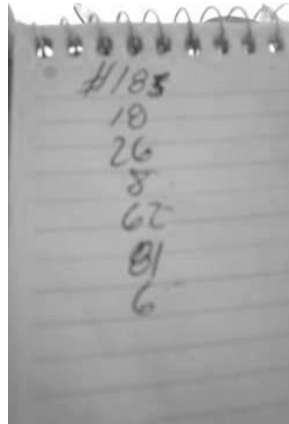 #185
18
26
8
62
81
6